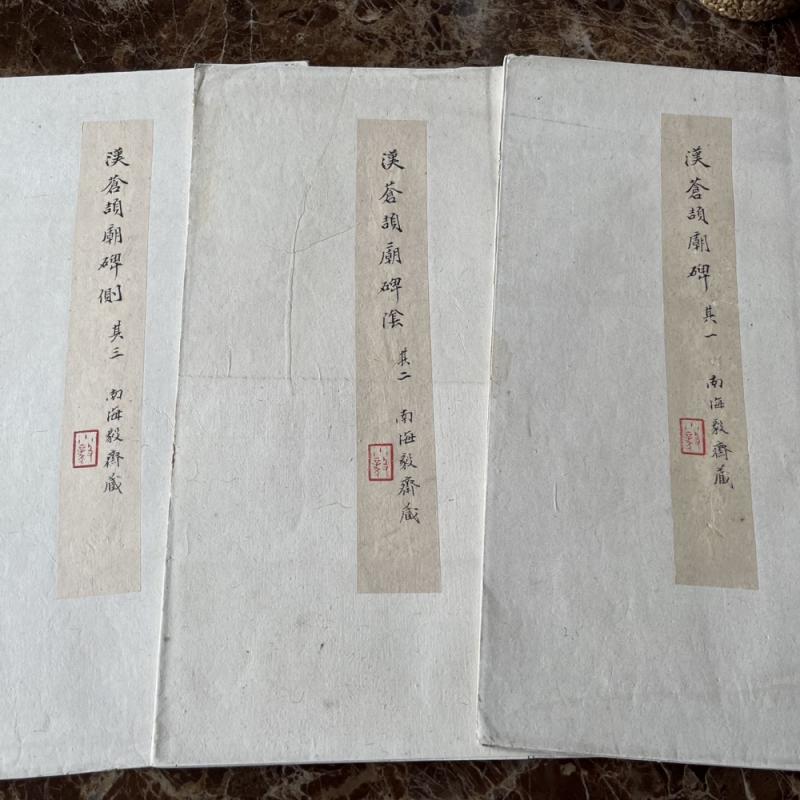 漢蒼頡廟碑 其一 南海毅齋藏
漢蒼頡廟碑陰 其二 南海毅齋藏
漢蒼頡廟碑側 其三 南海毅齋藏